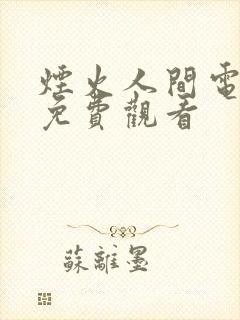 煙火人間電
免費觀看
蘇離墨